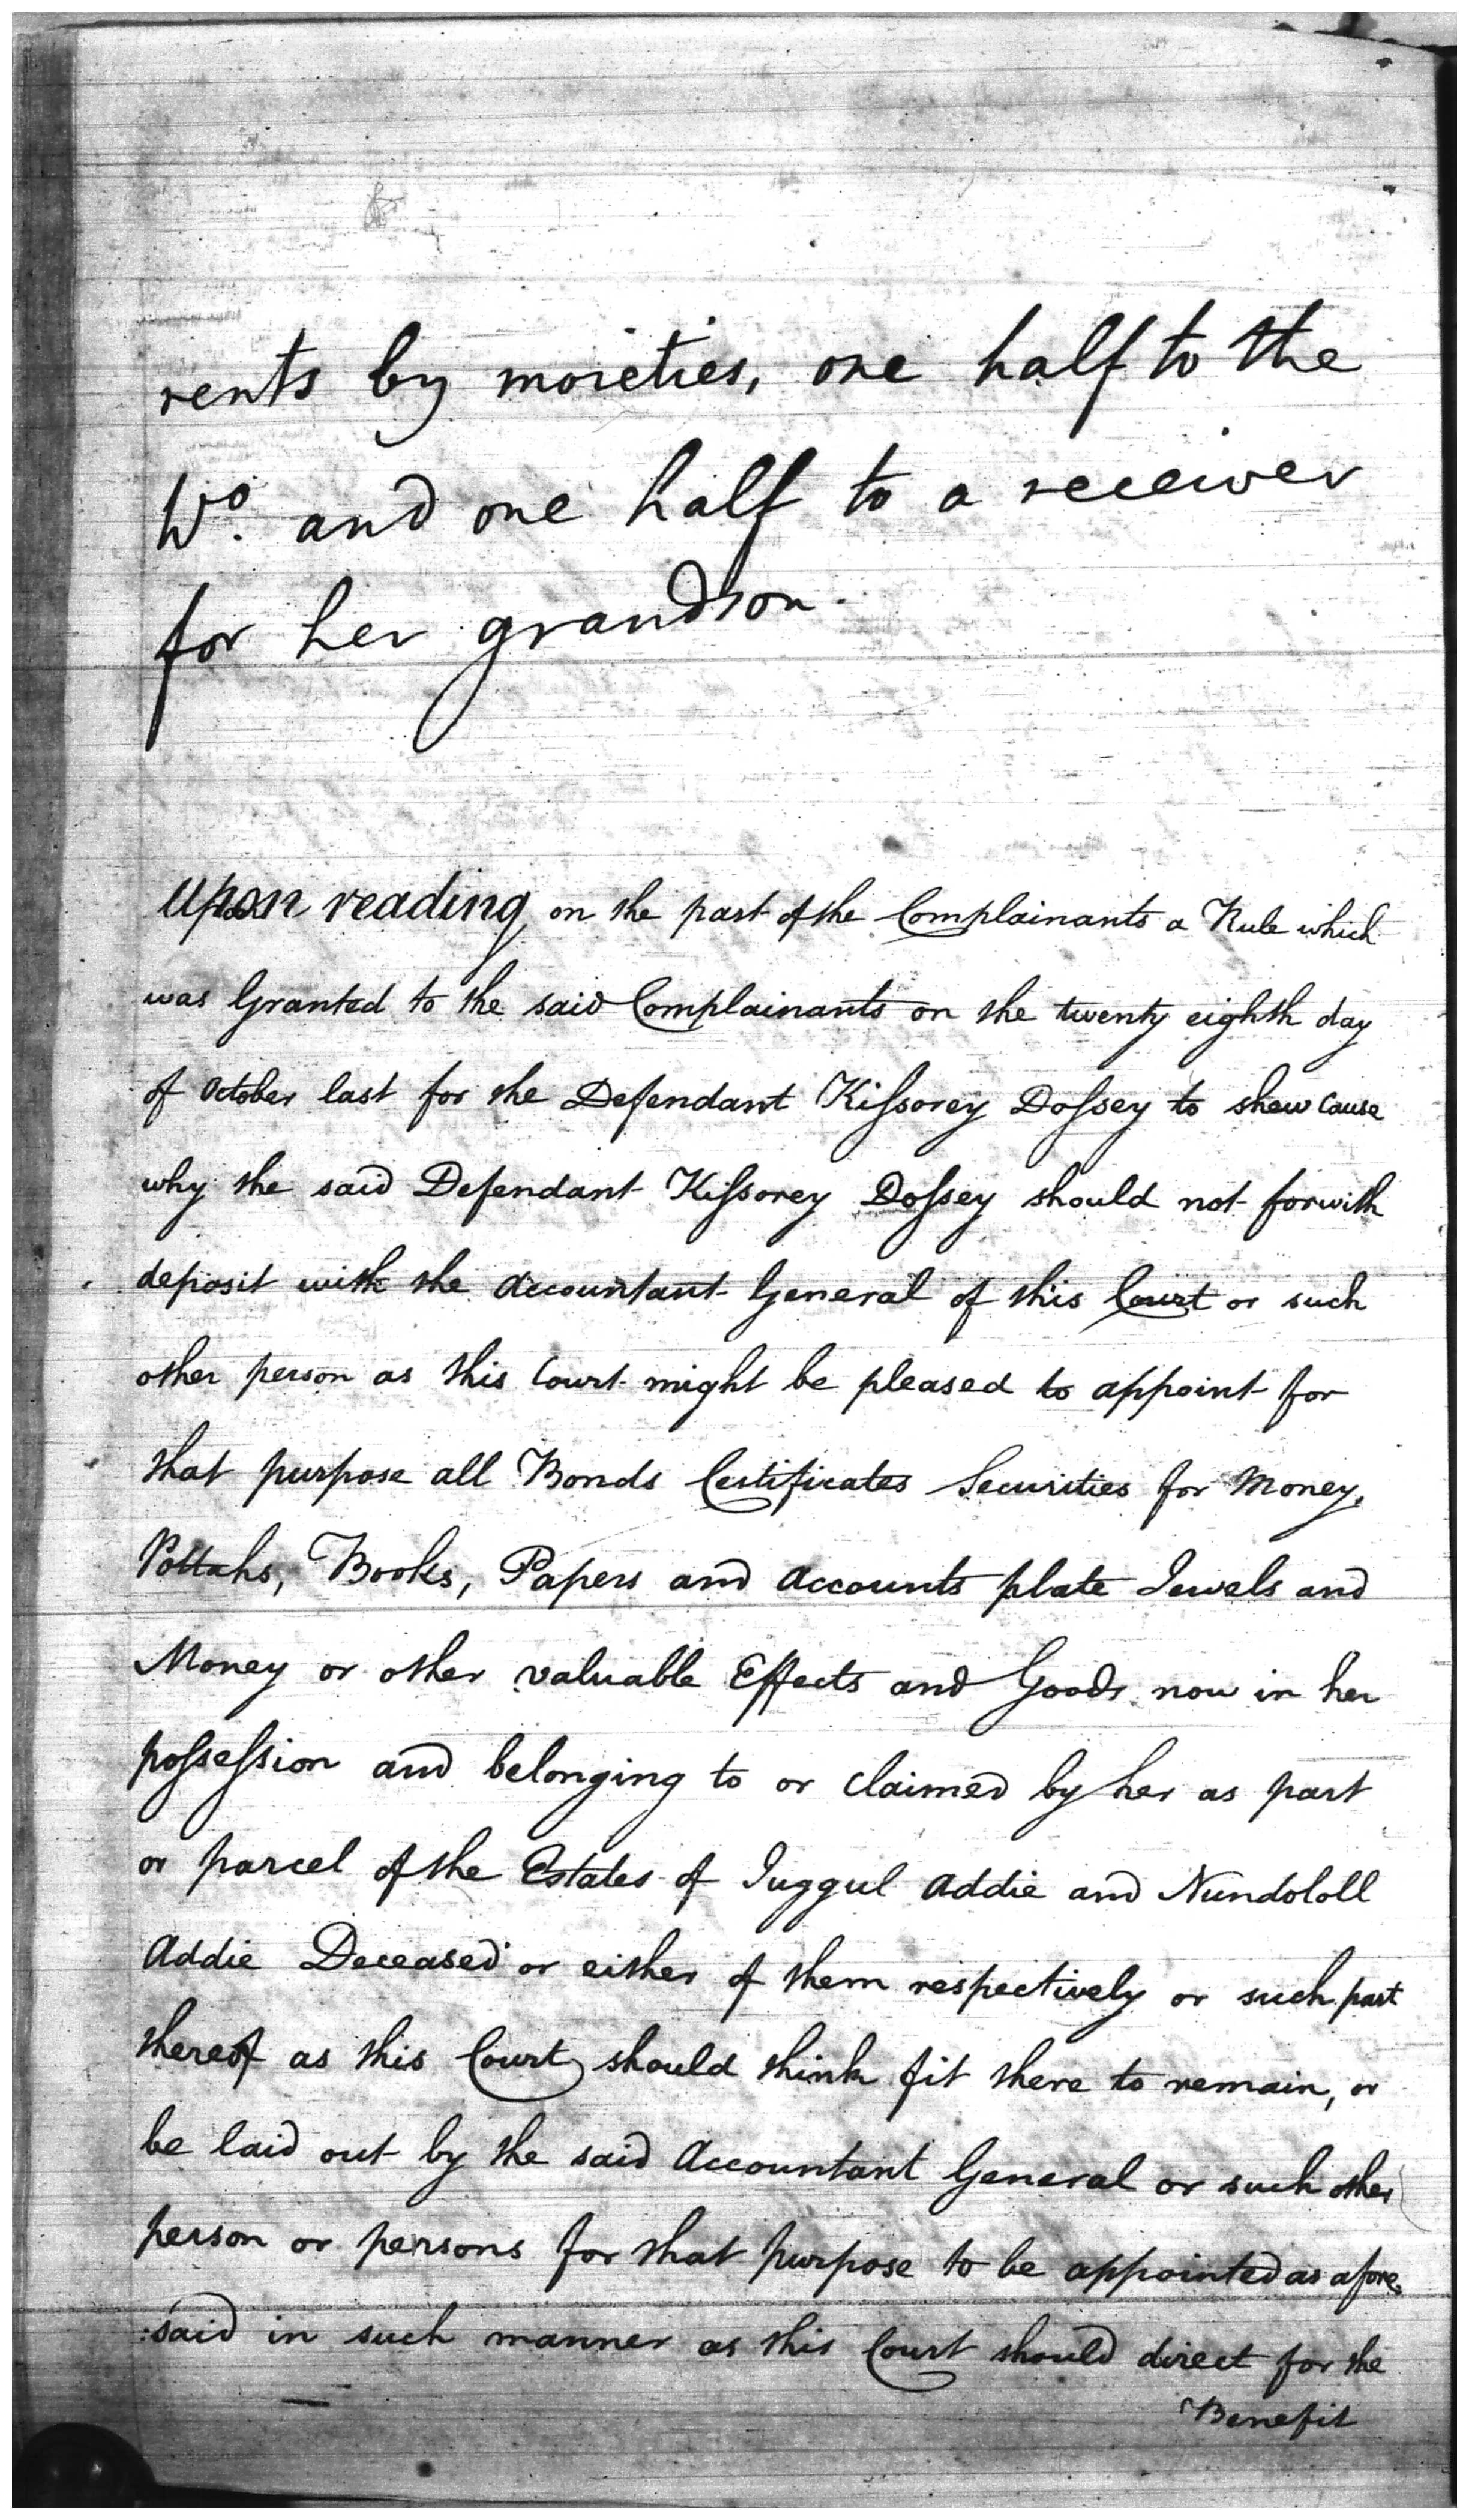 rents by moieties, one half to the
Wo. and one half to a receiver
for her grandson.
Upon reading on the part of the Complainants a Rule which
was Granted to the said Complainants on the twenty eighth day
of October last for the Defendant Kiſsorey Doſsey to shew Cause
why the said Defendant Kiſsorey Doſsey should not forwith
deposit with the Accountant General of this Court or such
other person as this Court might be pleased to appoint for
that purpose all Bonds Certificates Securities for Money,
Pottahs, Books, Papers and Accounts plate Jewels and
Money or other valuable Effects and Goods now in her
poſseſsion and belonging to or claimed by her as part
or parcel of the Estates of Juggul Addie and Nundololl
Addie Deceased or either of them respectively or such part
thereof as this Court should think fit there to remain, or
be laid out by the said Accountant General or such other
person or persons for that purpose to be appointed as afore
:said in such manner as this Court should direct for the
Benefit